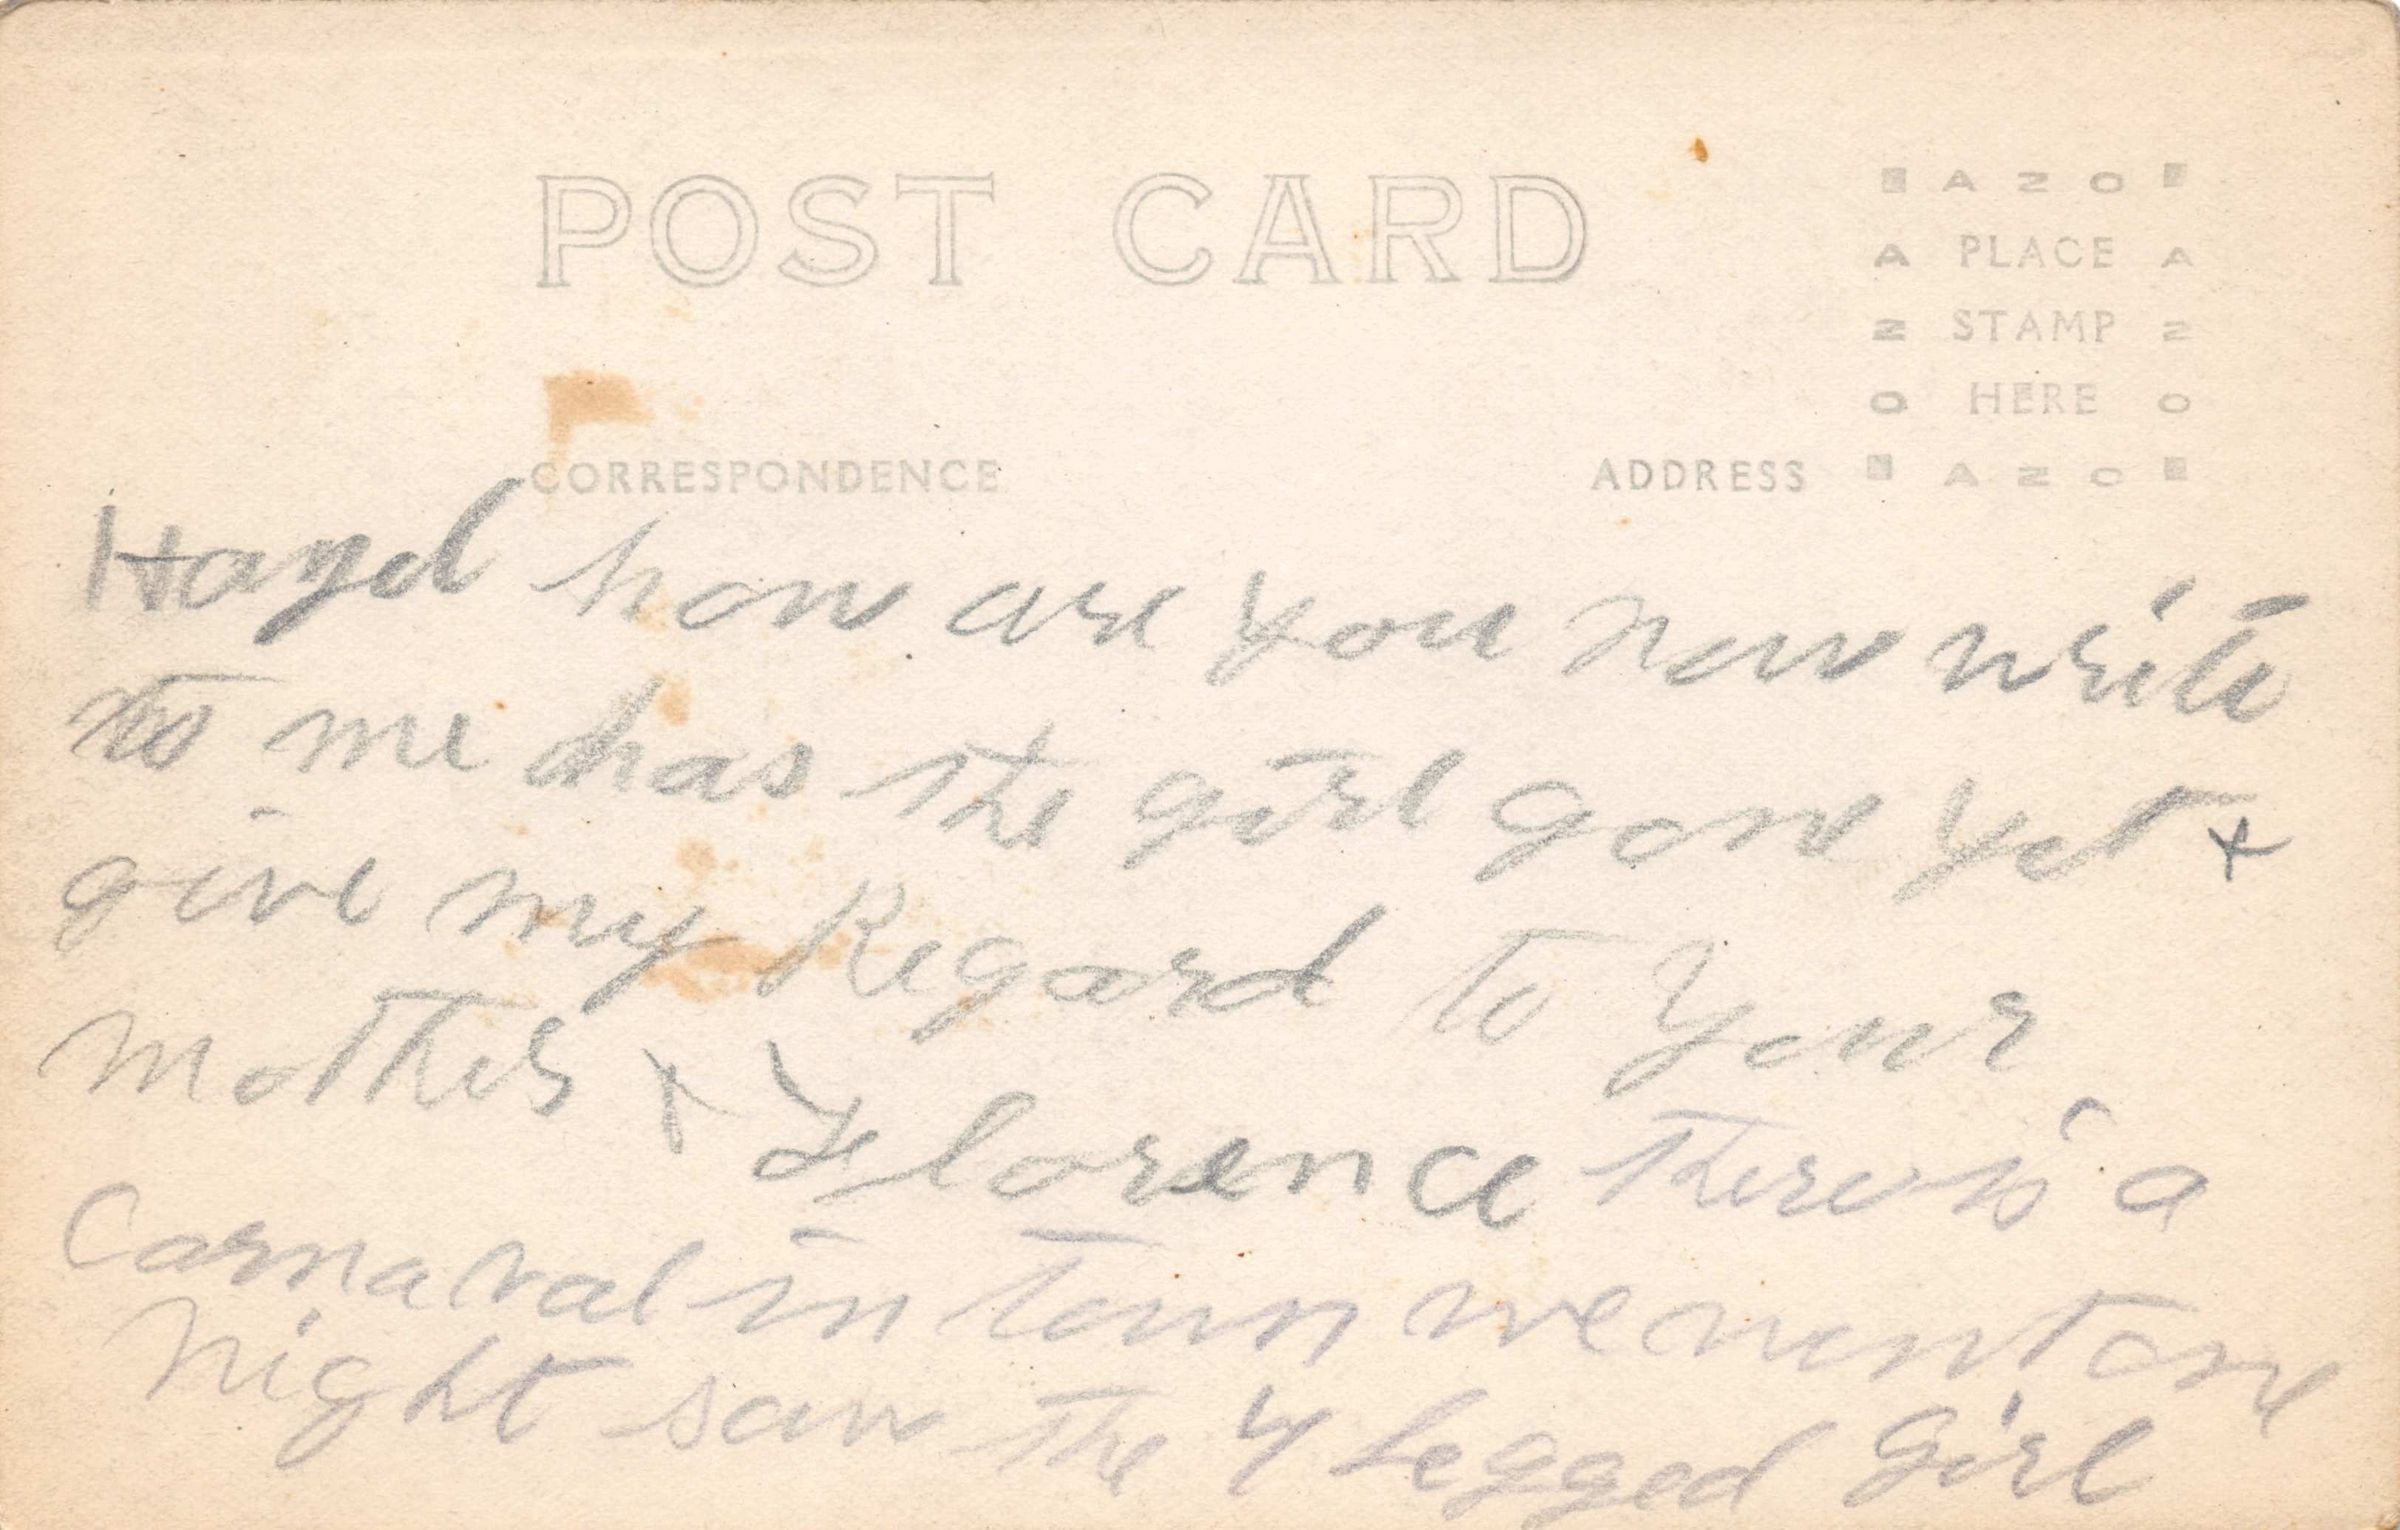 POST CARD
AZO
A PLACE A
Z STAMP Z
O HERE O
AZO
CORRESPONDENCE
ADDRESS
Hazel how are you now write
to me has the girl gone yet +
give my Regard to Your
Mother + Florence there is a
Carnaval in town we went one
Night saw the 4 Legged Girl